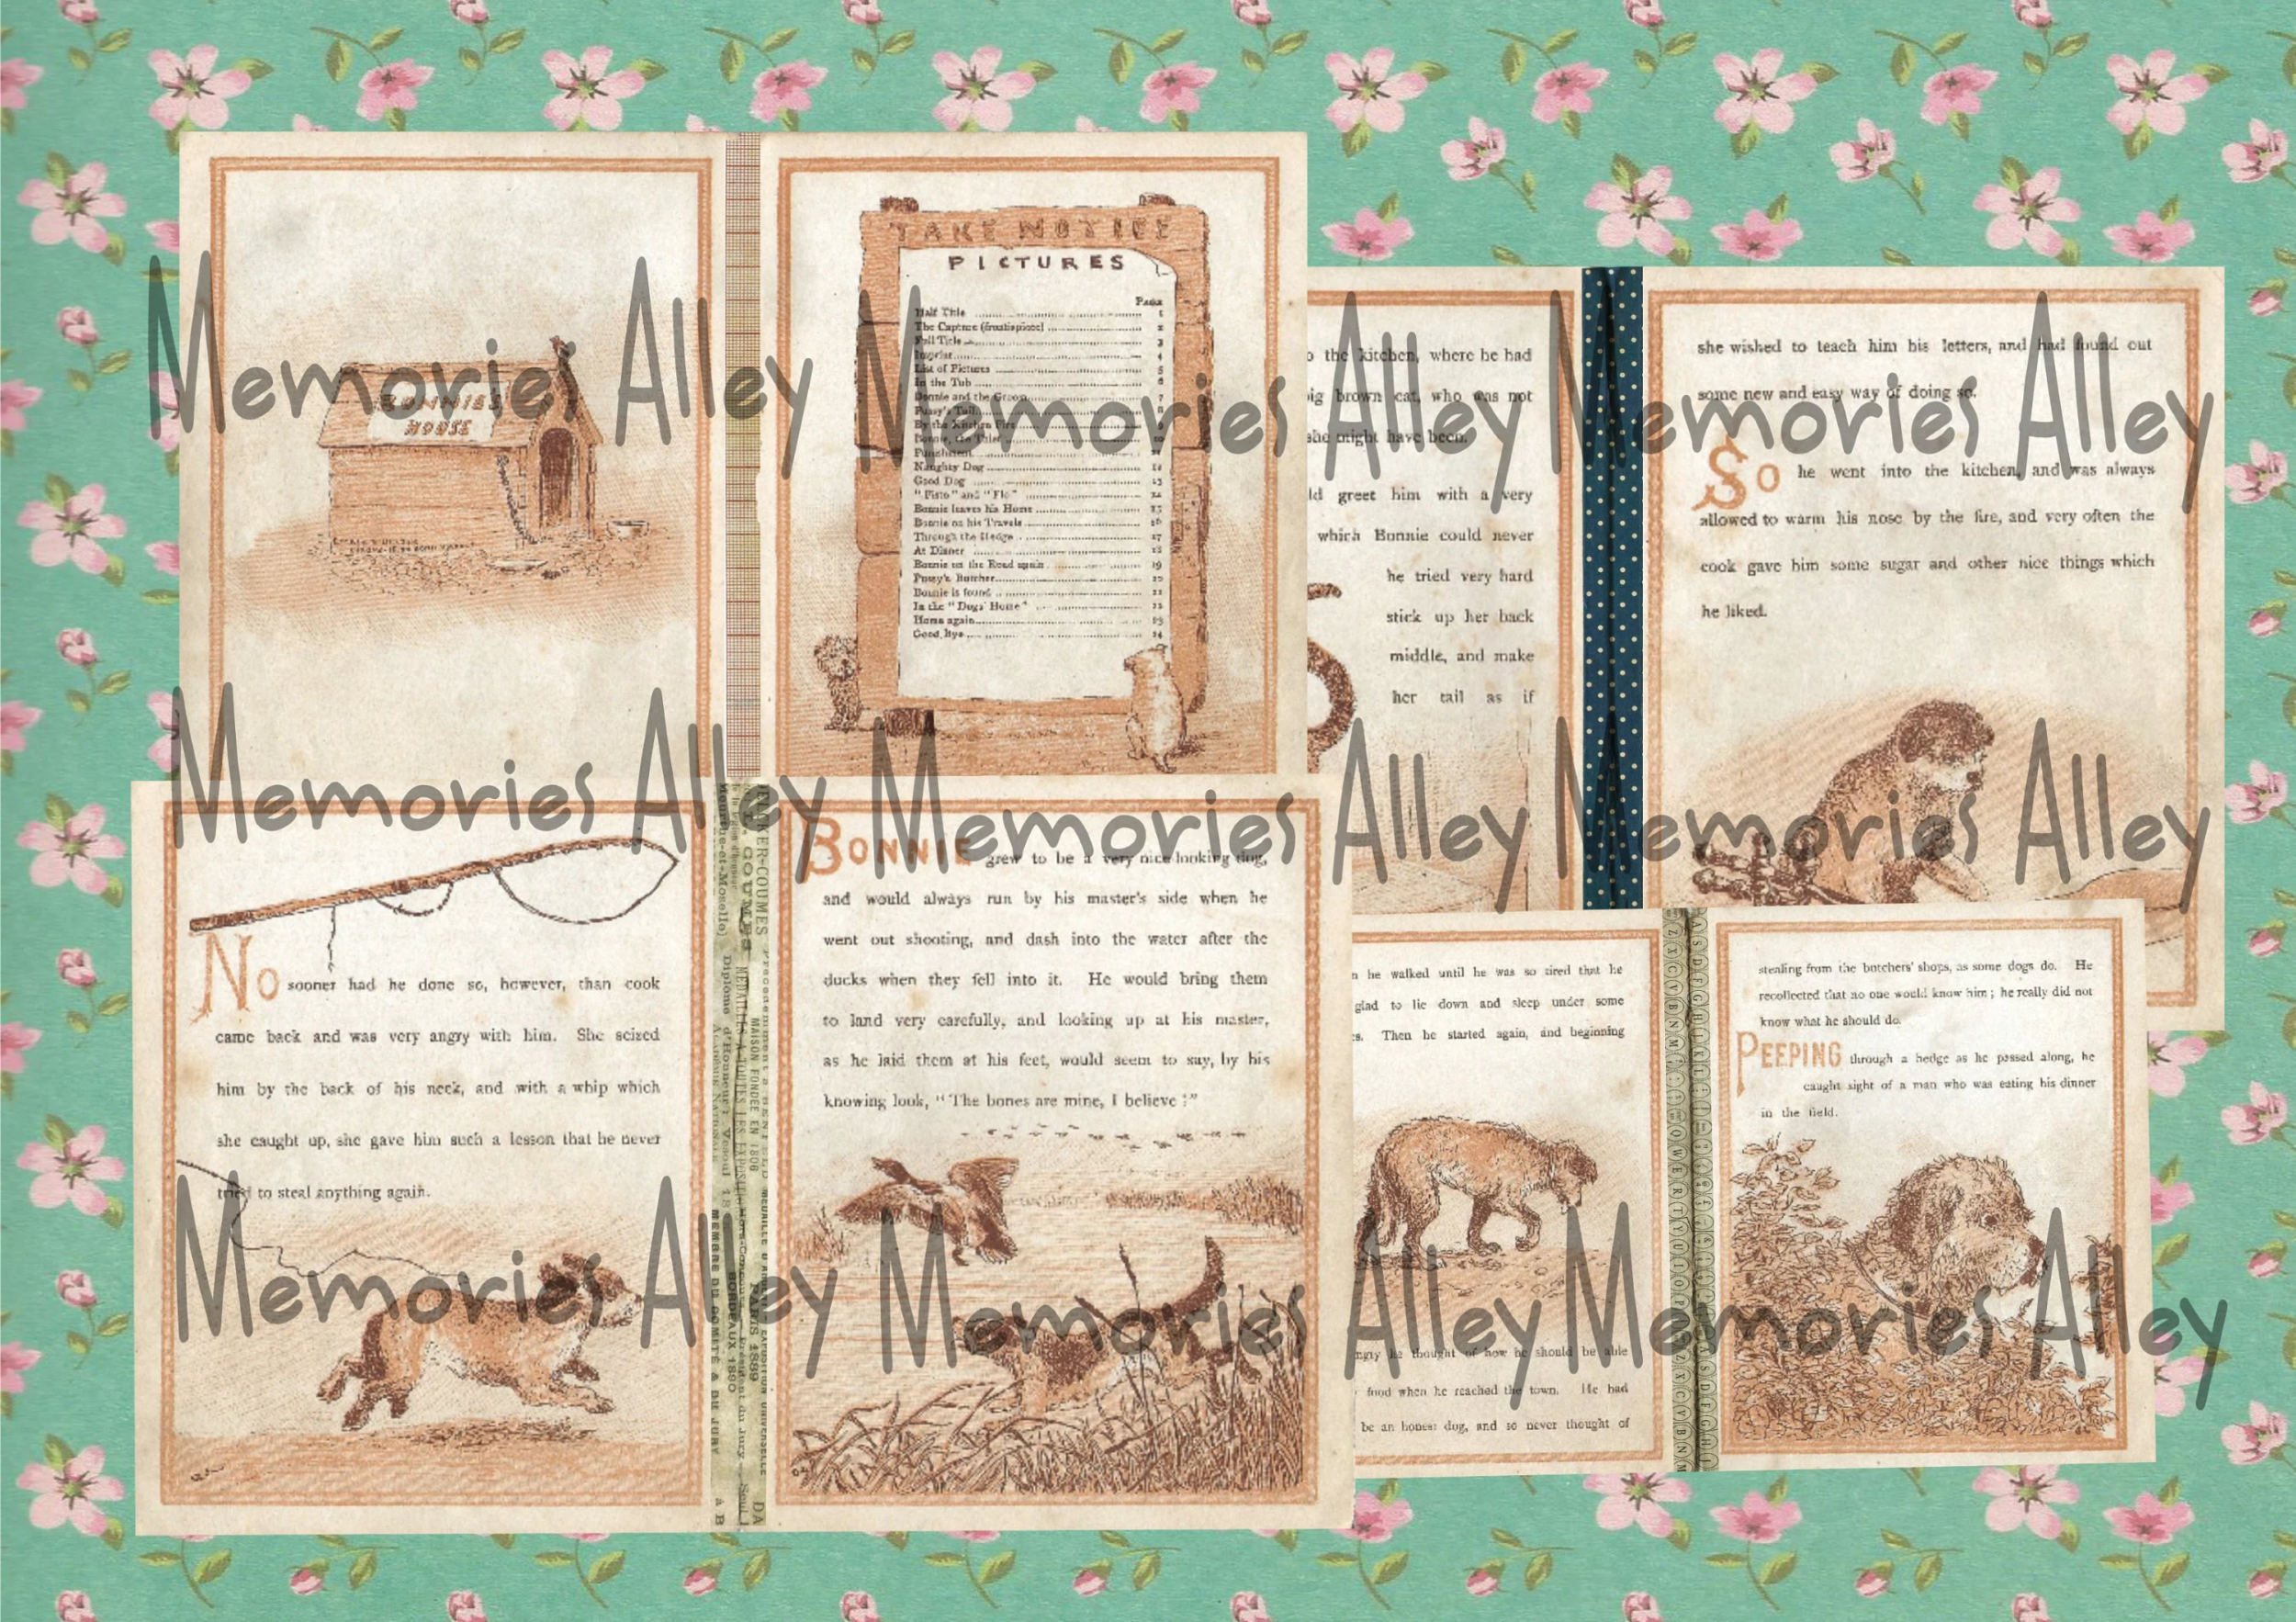 BONNIES
HOUSE
TAKE NOTICE
PICTURES
Page
Half Title 1
The Capture (frontispiece) 2
Full Title 3
Imprint 4
List of Pictures 5
In the Tub 6
Bonnie and the Groom 7
Pussy's Tail 8
By the Kitchen Fire 9
Bonnie, the Thief 10
Punishment 11
Naughty Dog 12
Good Dog 13
"Pisto" and "Flo" 14
Bonnie leaves his Home 15
Bonnie on his Travels 16
Through the Hedge 17
At Dinner 18
Bonnie on the Road again 19
Pussy's Butcher 20
Bonnie is found 21
In the "Dogs' Home" 22
Home again 23
Good Bye 24
the kitchen, where he had
big brown cat, who was not
she might have been.
greet him with a very
which Bonnie could never
he tried very hard
stick up her back
middle, and make
her tail as if
she wished to teach him his letters, and had found out
some new and easy way of doing so.
So he went into the kitchen, and was always
allowed to warm his nose by the fire, and very often the
cook gave him some sugar and other nice things which
he liked.
No sooner had he done so, however, than cook
came back and was very angry with him. She seized
him by the back of his neck, and with a whip which
she caught up, she gave him such a lesson that he never
tried to steal anything again.
BONNIE grew to be a very nice-looking dog,
and would always run by his master's side when he
went out shooting, and dash into the water after the
ducks when they fell into it. He would bring them
to land very carefully, and looking up at his master,
as he laid them at his feet, would seem to say, by his
knowing look, "The bones are mine, I believe!"
he walked until he was so tired that he
glad to lie down and sleep under some
Then he started again, and beginning
he thought of how he should be able
food when he reached the town. He had
be an honest dog, and so never thought of
stealing from the butchers' shops, as some dogs do. He
recollected that no one would know him; he really did not
know what he should do.
PEEPING through a hedge as he passed along, he
caught sight of a man who was eating his dinner
in the field.
MAISON FONDÉE EN 1806
PARIS 1889
BORDEAUX 1890
MEMBRE DU COMITÉ & DU JURY
Memories Alley Memories Alley Memories Alley
Memories Alley Memories Alley Memories Alley
Memories Alley Memories Alley Memories Alley